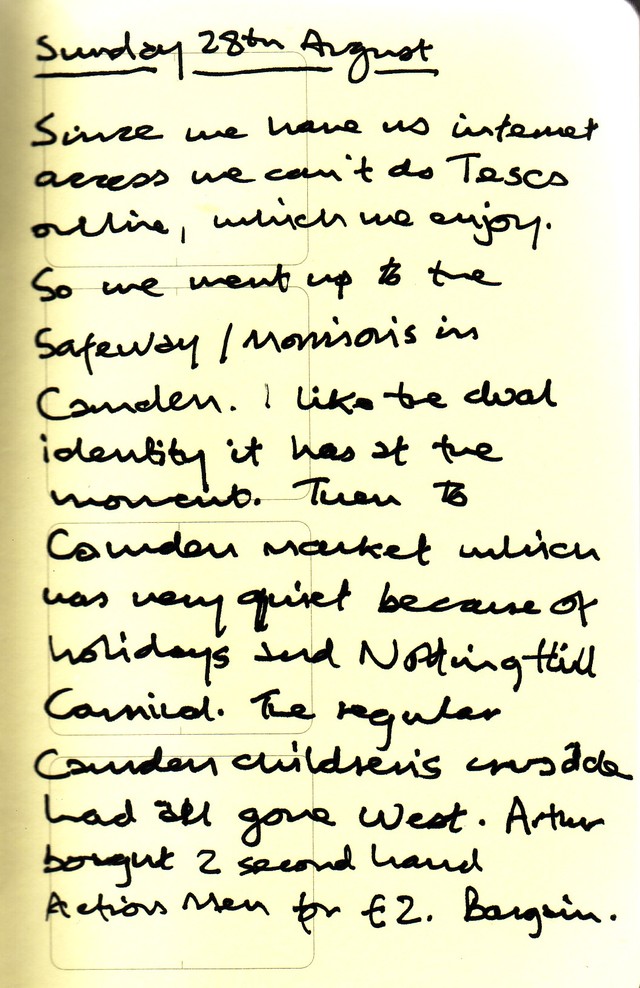 Sunday 28th August
Since we have no internet
access we can't do Tescos
online, which we enjoy.
So we went up to the
Safeway / Morrisons in
Camden. I like the dual
identity it has at the
moment. Then to
Camden market which
was very quiet because of
holidays and Notting Hill
Carnival. The regular
Camden children's crusade
had all gone West. Arthur
bought 2 second hand
Action Men for £2. Bargain.